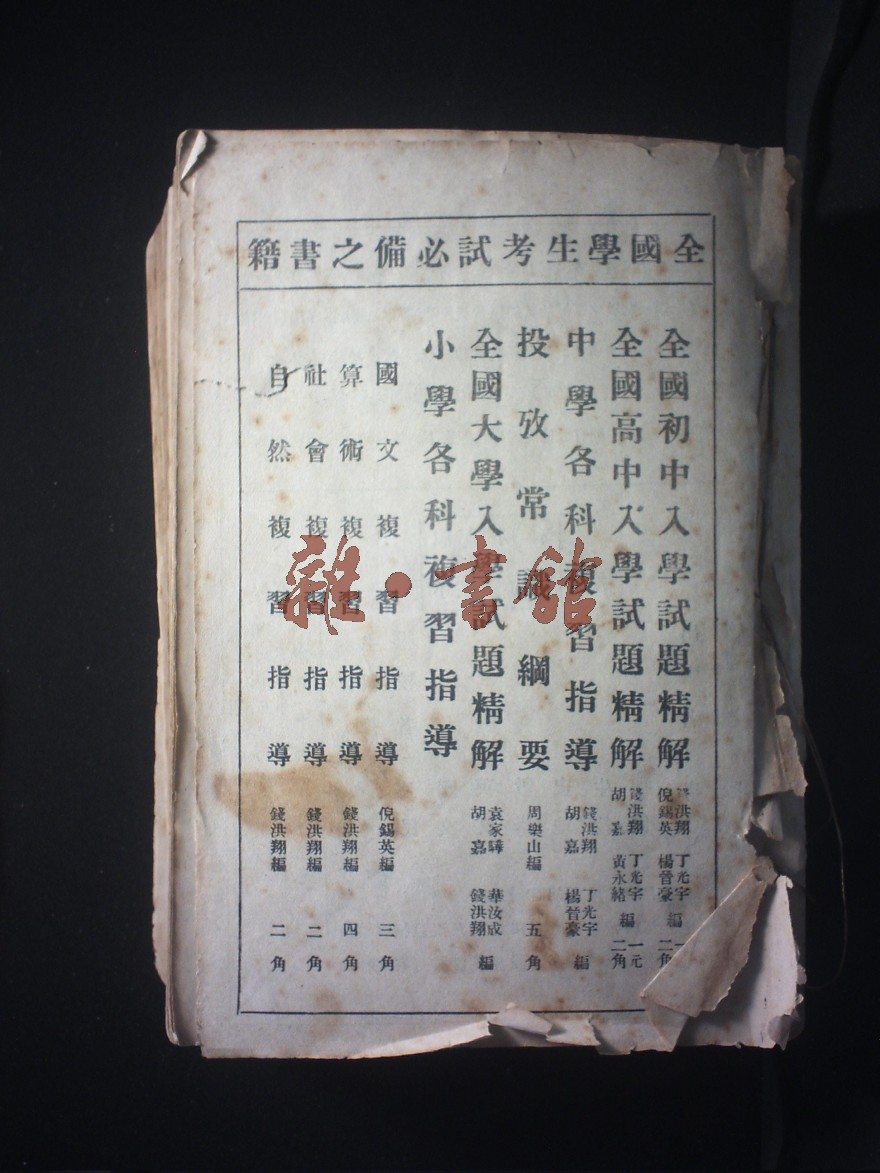 全國學生考試必備之書籍
全國初中入學試題精解 錢洪翔 丁光宇 倪錫英 楊晉豪 編 二角
全國高中入學試題精解 錢洪翔 丁光宇 胡嘉 黃永緒 編 一元二角
中學各科複習指導 錢洪翔 丁光宇 胡嘉 楊晉豪 編
投攷常識綱要 周樂山編 五角
全國大學入學試題精解 袁家驊 華汝成 胡嘉 錢洪翔 編
小學各科複習指導
國文複習指導 倪錫英編 三角
算術複習指導 錢洪翔編 四角
社會複習指導 錢洪翔編 二角
自然複習指導 錢洪翔編 二角
雜·書館